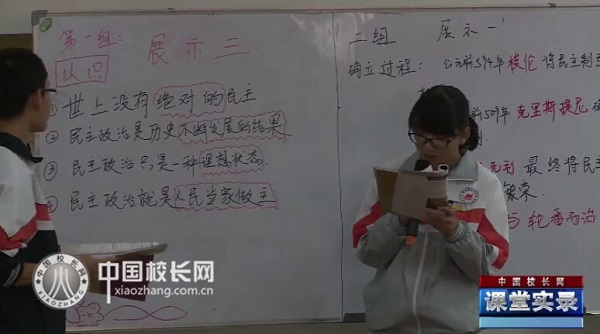 第一组: 展示三
认识
① 世上没有绝对的民主
② 民主政治是历史不断发展的结果
③ 民主政治只是一种理想状态.
④ 民主政治就是人民当家做主
二组 展示一
确立过程: 公元前594年梭伦将民主制
前509年 克里斯提尼
克利 最终将民
繁荣.
与 轮番而治
中国校长网
XIAOZHANG
中国校长网
xiaozhang.com.cn
中国校长网
课堂实录